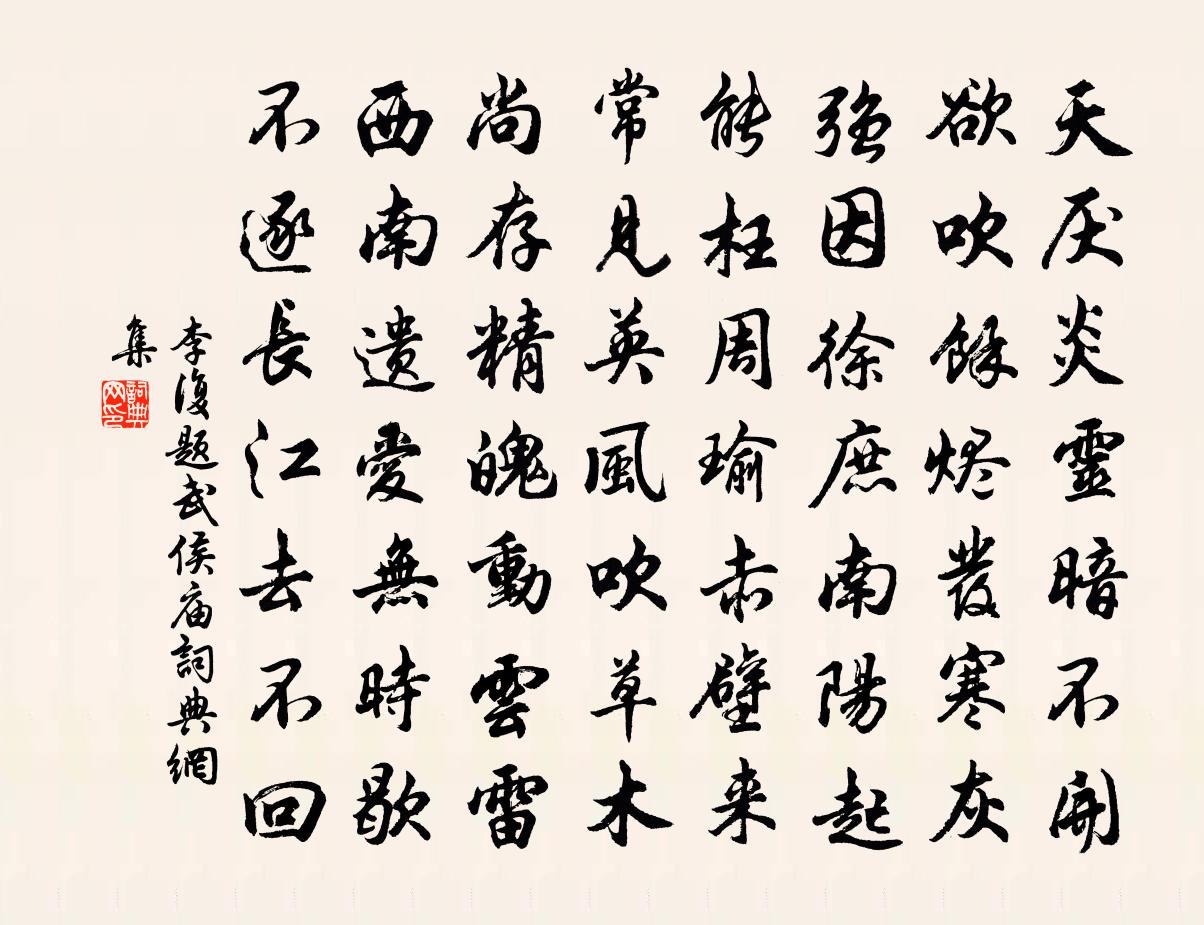 天厌炎靈暗不開
欲吹餘烬發寒灰
强因徐庶南陽起
能枉周瑜赤壁来
常見英風吹草木
尚存精魄動雲雷
西南遗愛無時歇
不逐長江去不回
李復题武侯庙詞典網
集
詞典网印